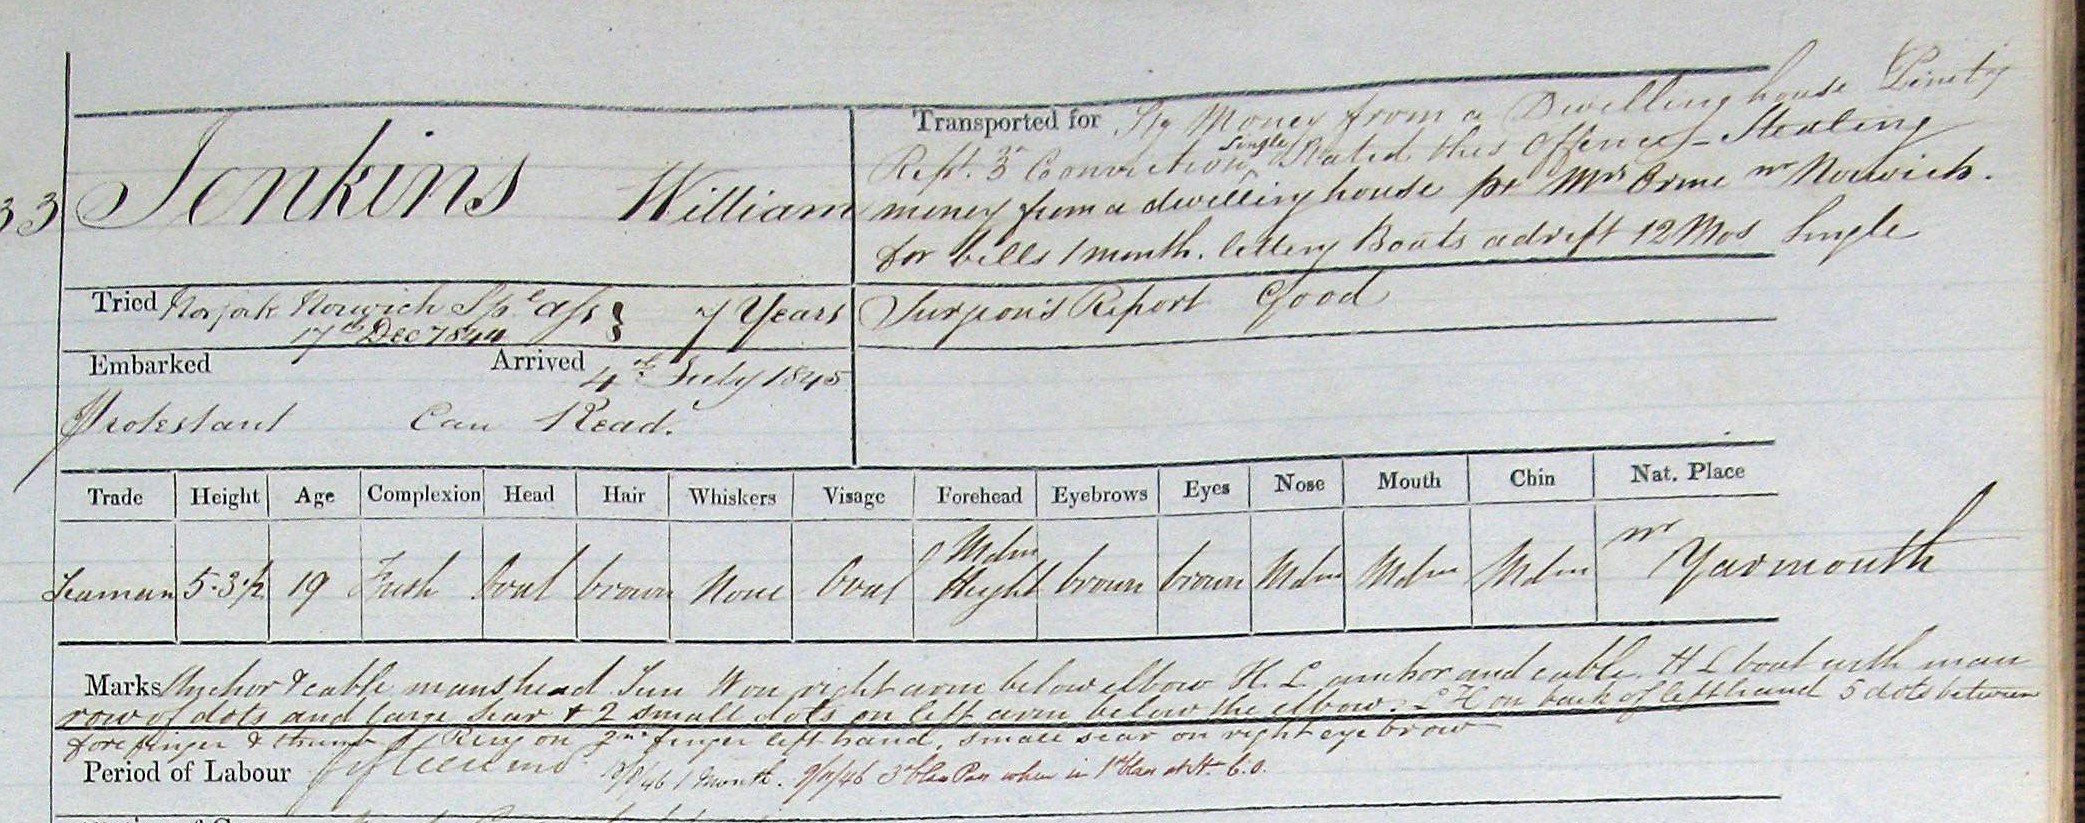 33 Jenkins William
Transported for Stg Money from a Dwelling house
Rept. 3rd Conviction Single Stated this Offence - Stealing
money from a dwelling house pr Mrs Orme nr Norwich.
for bells 1 month. letting Boats adrift 12 Mos Single
Tried Norfolk Norwich Spl ass 7 Years
17th Decr 1844
Surgeon's Report Good
Embarked Arrived 4th July 1845
Protestant Can Read.
Trade Height Age Complexion Head Hair Whiskers Visage Forehead Eyebrows Eyes Nose Mouth Chin Nat. Place
Seaman 5-3½ 19 Fresh Oval brown None Oval Mdm Height brown brown Mdm Mdm Mdm nr Yarmouth
Marks Anchor & cable manshead Sun W on right arm below elbow H. L anchor and cable H L boat with man
row of dots and large scar & 2 small dots on left arm below the elbow. L H on back of left hand 5 dots between
fore finger & thumb Ring on 2nd finger left hand, small scar on right eye brow
Period of Labour fifteen mos 1 Month. 9/11/46 3d Class Pass when in 1st Class